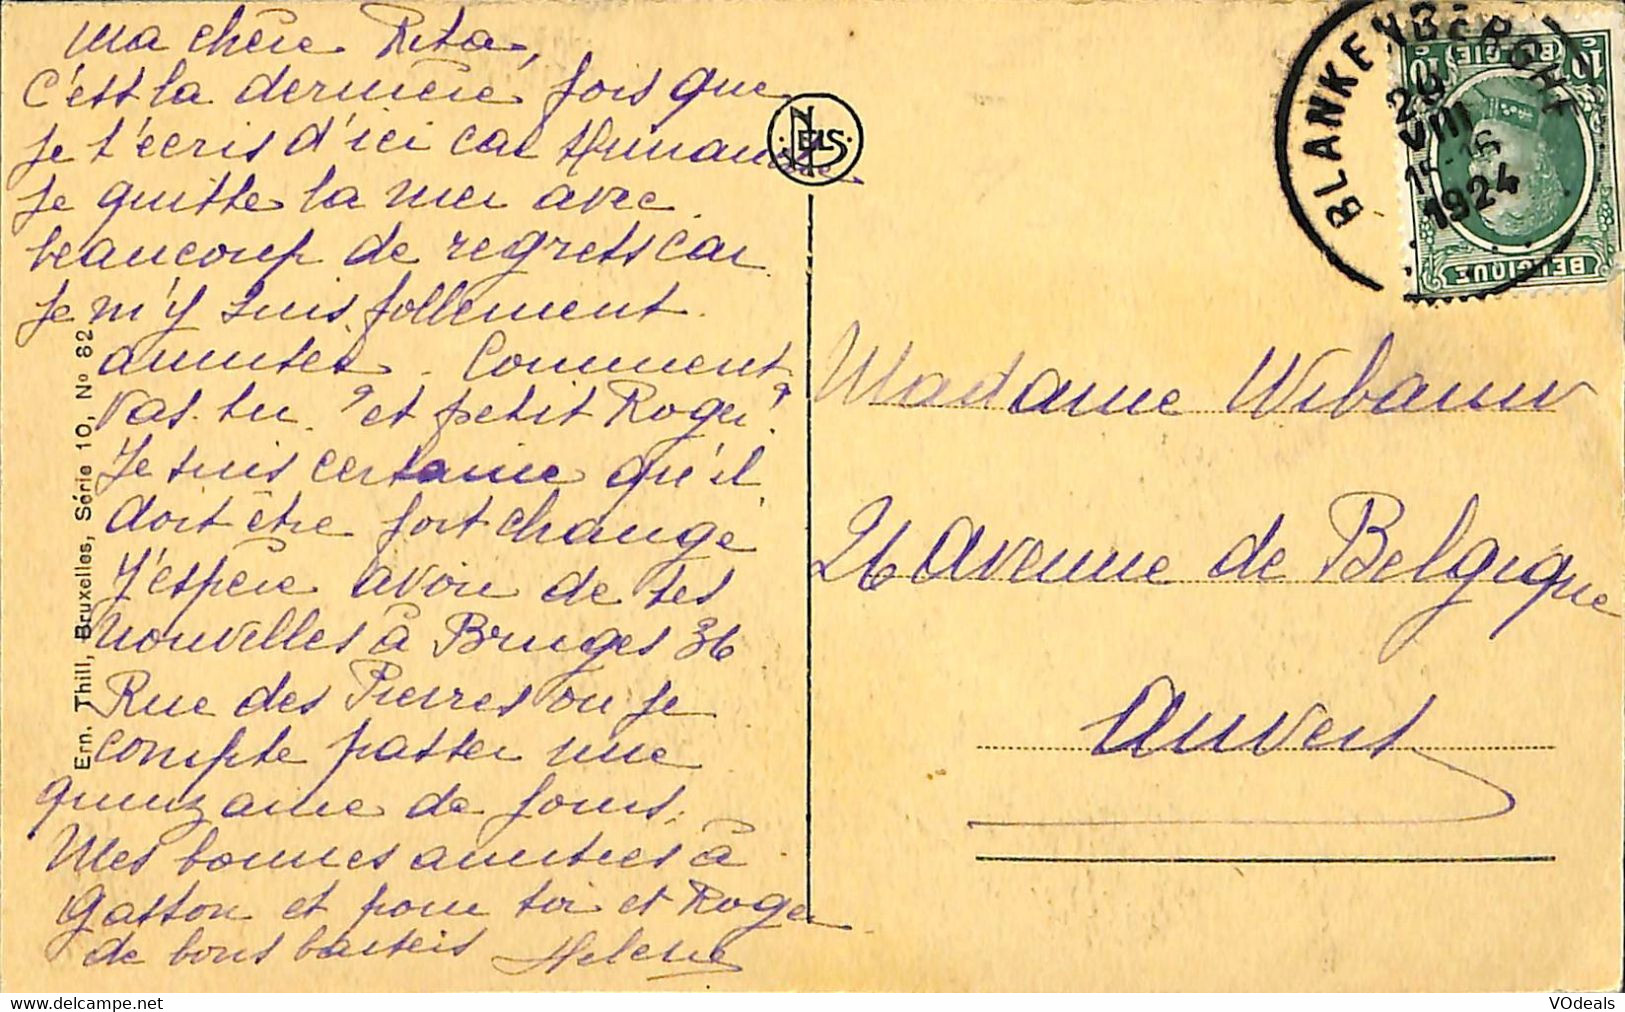 Ma chère Rita,
C'est la dernière fois que
je t'écris d'ici car dimanche
je quitte la mer avec
beaucoup de regrets car
je m'y suis follement
amusée. Comment
vas-tu ? et petit Roger ?
Je suis certaine qu'il
doit être fort changé
J'espère avoir de tes
nouvelles à Bruges 36
Rue des Pierres où je
compte passer une
quinzaine de jours.
Mes bonnes amitiés à
Gaston et pour toi et Roger
de bons baisers Helene
Ern. Thill, Bruxelles, Série 10, No 82.
NELS
BLANKENBERGHE
VIII
15-16
1924
BELGIË 10 C
BELGIQUE
Madame
26 Avenue de Belgique
Anvers
VOdeals